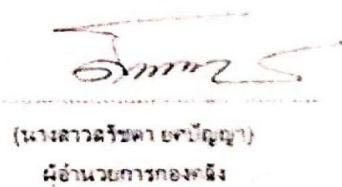 (นางสาวศรัชดา ยศปัญญา)
ผู้อำนวยการกองคลัง